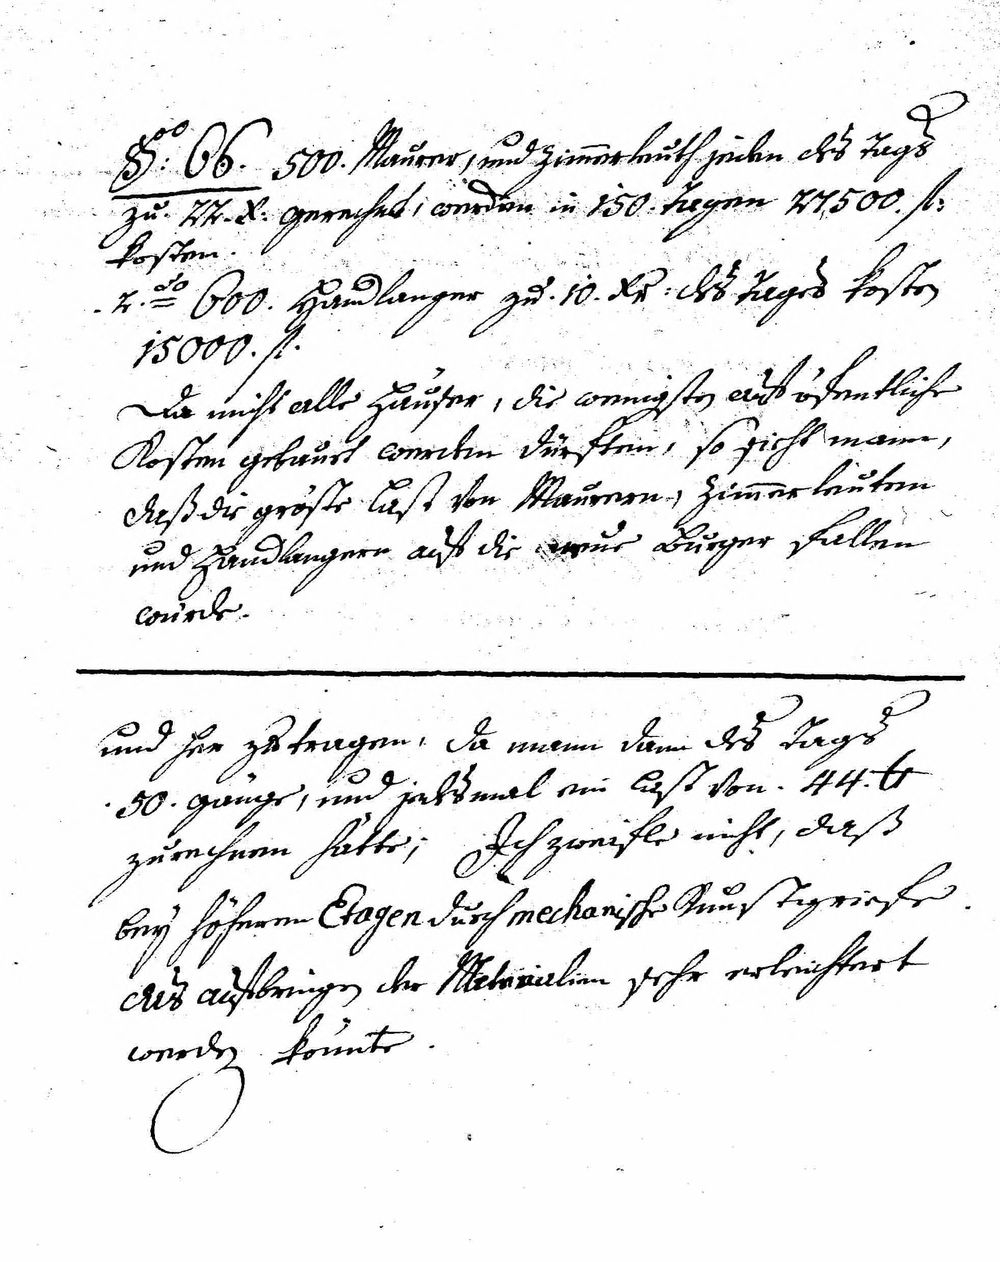 §: 66. 500. Maurer, und Zimmerleuth jeden des Tags
zu. 22. X. gerechnet, werden in 150. tagen 27,500. fl:
kosten.
2.do 600. Handlanger zu. 10. Xr: des tages kosten
15000. fl.
Da nicht alle Häuser, die wenigsten auf öfentliche
Kosten gebauet werden dürften, so sieht mann,
daß die gröste Last von Maurern, Zimmerleuten
und Handlangern auf die neue Burger fallen
würde.
und her zu tragen, da mann dann des Tags
50. gänge, und jedesmal ein Last von. 44. ℔
zurechnen hätte; Ich zweifle nicht, daß
bey höheren Etagen durch mechanische Kunstgriefe
das aufbringen der Materialien sehr erleichtert
werden könnte.